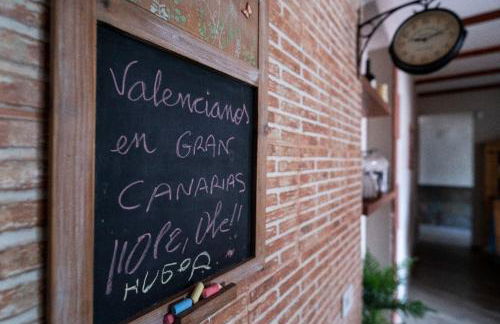 Valencianos
en GRAN
CANARIAS
¡¡OPE, Ole!!